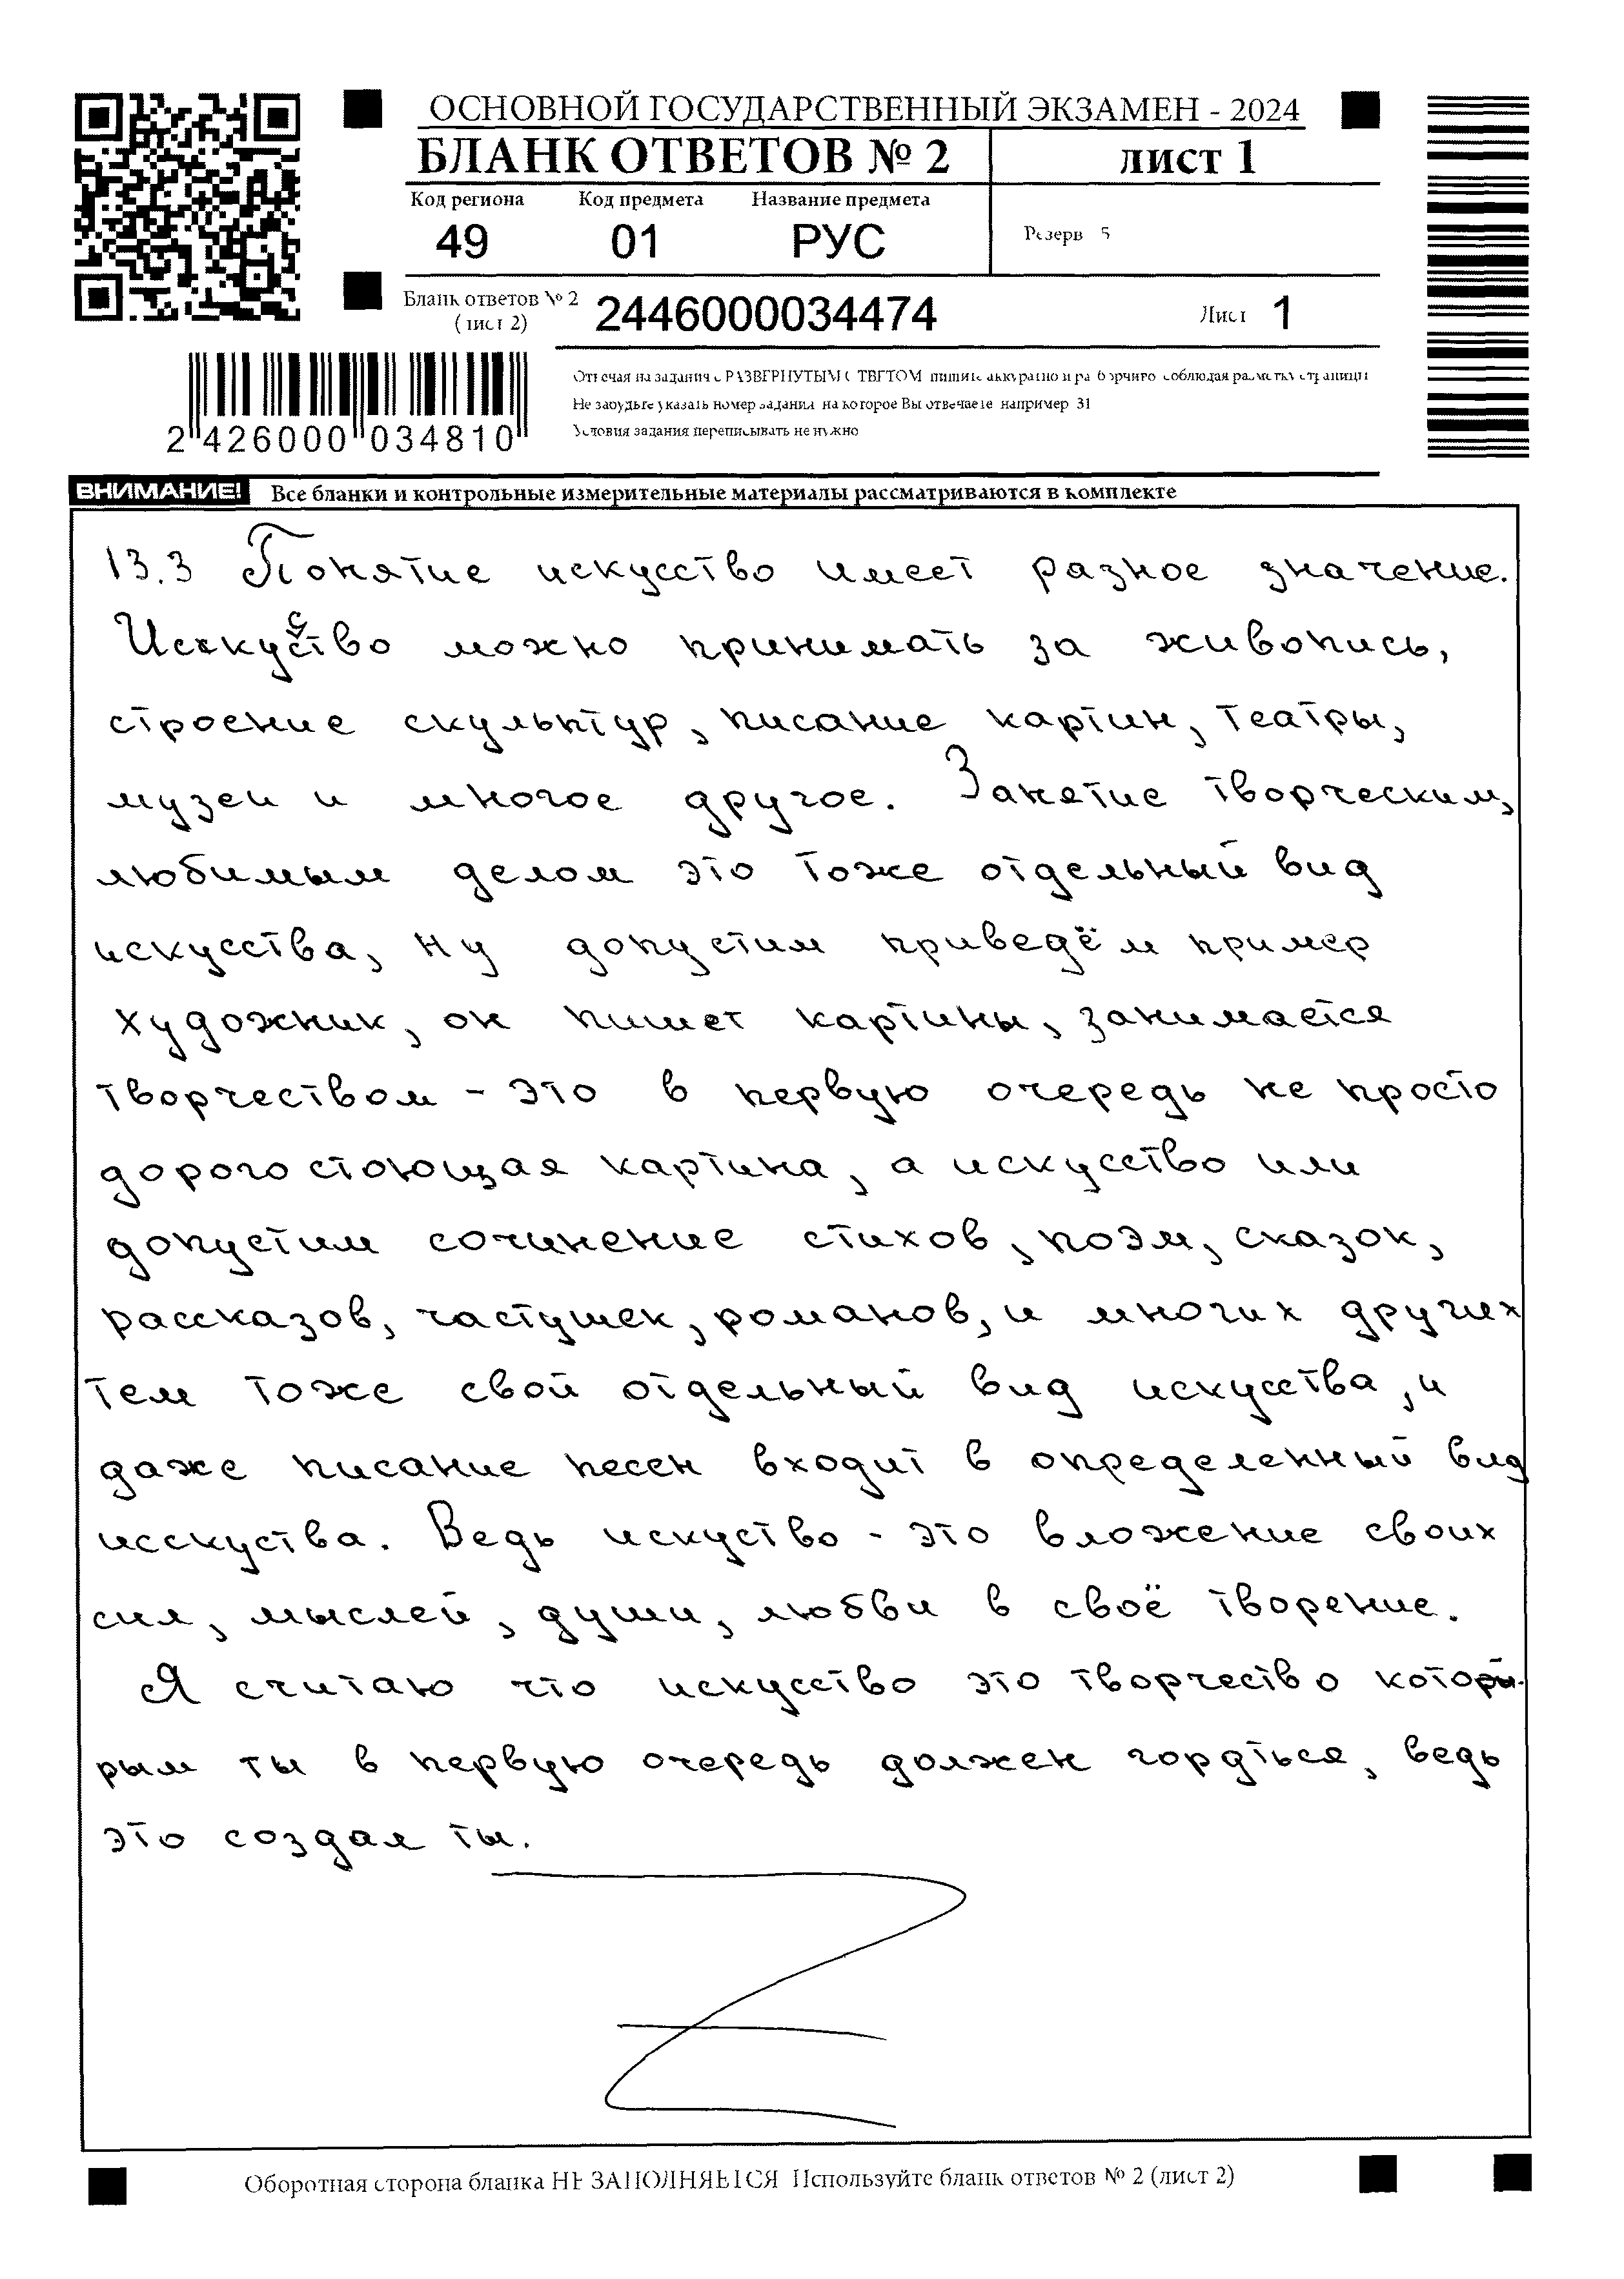 ОСНОВНОЙ ГОСУДАРСТВЕННЫЙ ЭКЗАМЕН - 2024
БЛАНК ОТВЕТОВ № 2 лист 1
Код региона Код предмета Название предмета
49 01 РУС Резерв 5
Бланк ответов № 2 (лист 2) 2446000034474 Лист 1
2 426000 034810
Отвечая на задания с РАЗВЕРНУТЫМ ОТВЕТОМ пишите аккуратно и разборчиво соблюдая разметку страницы
Не забудьте указать номер задания на которое Вы отвечаете например 31
Условия задания переписывать не нужно
ВНИМАНИЕ! Все бланки и контрольные измерительные материалы рассматриваются в комплекте
13.3 Понятие искусство имеет разное значение.
Искусство можно принимать за живопись,
строение скульптур, писание картин, театры,
музеи и многое другое. Занятие творческим,
любимым делом это тоже отдельный вид
искусства, ну допустим приведём пример
художник, он пишет картины, занимается
творчеством - это в первую очередь не просто
дорого стоющая картина, а искусство или
допустим сочинение стихов, поэм, сказок,
рассказов, частушек, романов, и многих других
тем тоже свой отдельный вид искусства, и
даже писание песен входит в определенный вид
исскуства. Ведь искуство - это вложение своих
сил, мыслей, души, любви в своё творение.
Я считаю что искусство это творчество кото
рым ты в первую очередь должен гордться, ведь
это создал ты.
Оборотная сторона бланка НЕ ЗАПОЛНЯЕТСЯ Используйте бланк ответов № 2 (лист 2)